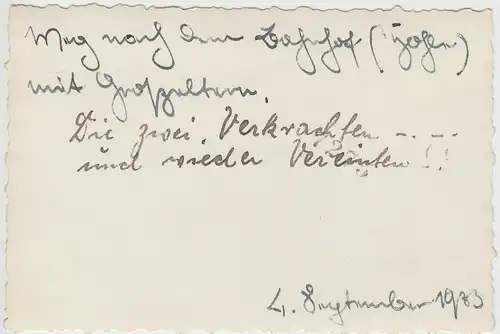 Weg nach dem Bahnhof (Höhle)
mit Großeltern.
Die zwei Verkrachten -.-.-
und wieder Vereinten!!
4. September 1933